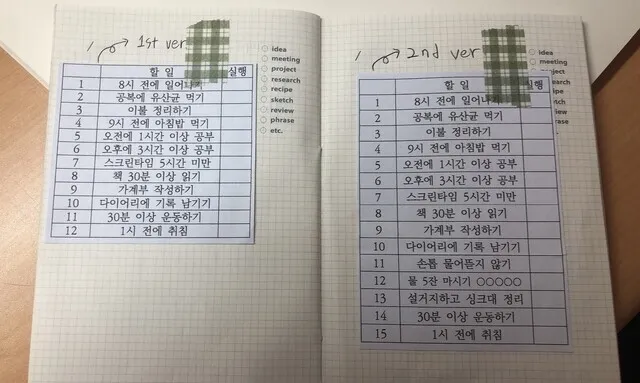 1st ver
idea
meeting
project
research
recipe
sketch
review
phrase
etc.
할 일 실행
1 8시 전에 일어나기
2 공복에 유산균 먹기
3 이불 정리하기
4 9시 전에 아침밥 먹기
5 오전에 1시간 이상 공부
6 오후에 3시간 이상 공부
7 스크린타임 5시간 미만
8 책 30분 이상 읽기
9 가계부 작성하기
10 다이어리에 기록 남기기
11 30분 이상 운동하기
12 1시 전에 취침
2nd ver
idea
meeting
phrase
할 일 실행
1 8시 전에 일어나기
2 공복에 유산균 먹기
3 이불 정리하기
4 9시 전에 아침밥 먹기
5 오전에 1시간 이상 공부
6 오후에 3시간 이상 공부
7 스크린타임 5시간 미만
8 책 30분 이상 읽기
9 가계부 작성하기
10 다이어리에 기록 남기기
11 손톱 물어뜯지 않기
12 물 5잔 마시기 ○○○○○
13 설거지하고 싱크대 정리
14 30분 이상 운동하기
15 1시 전에 취침